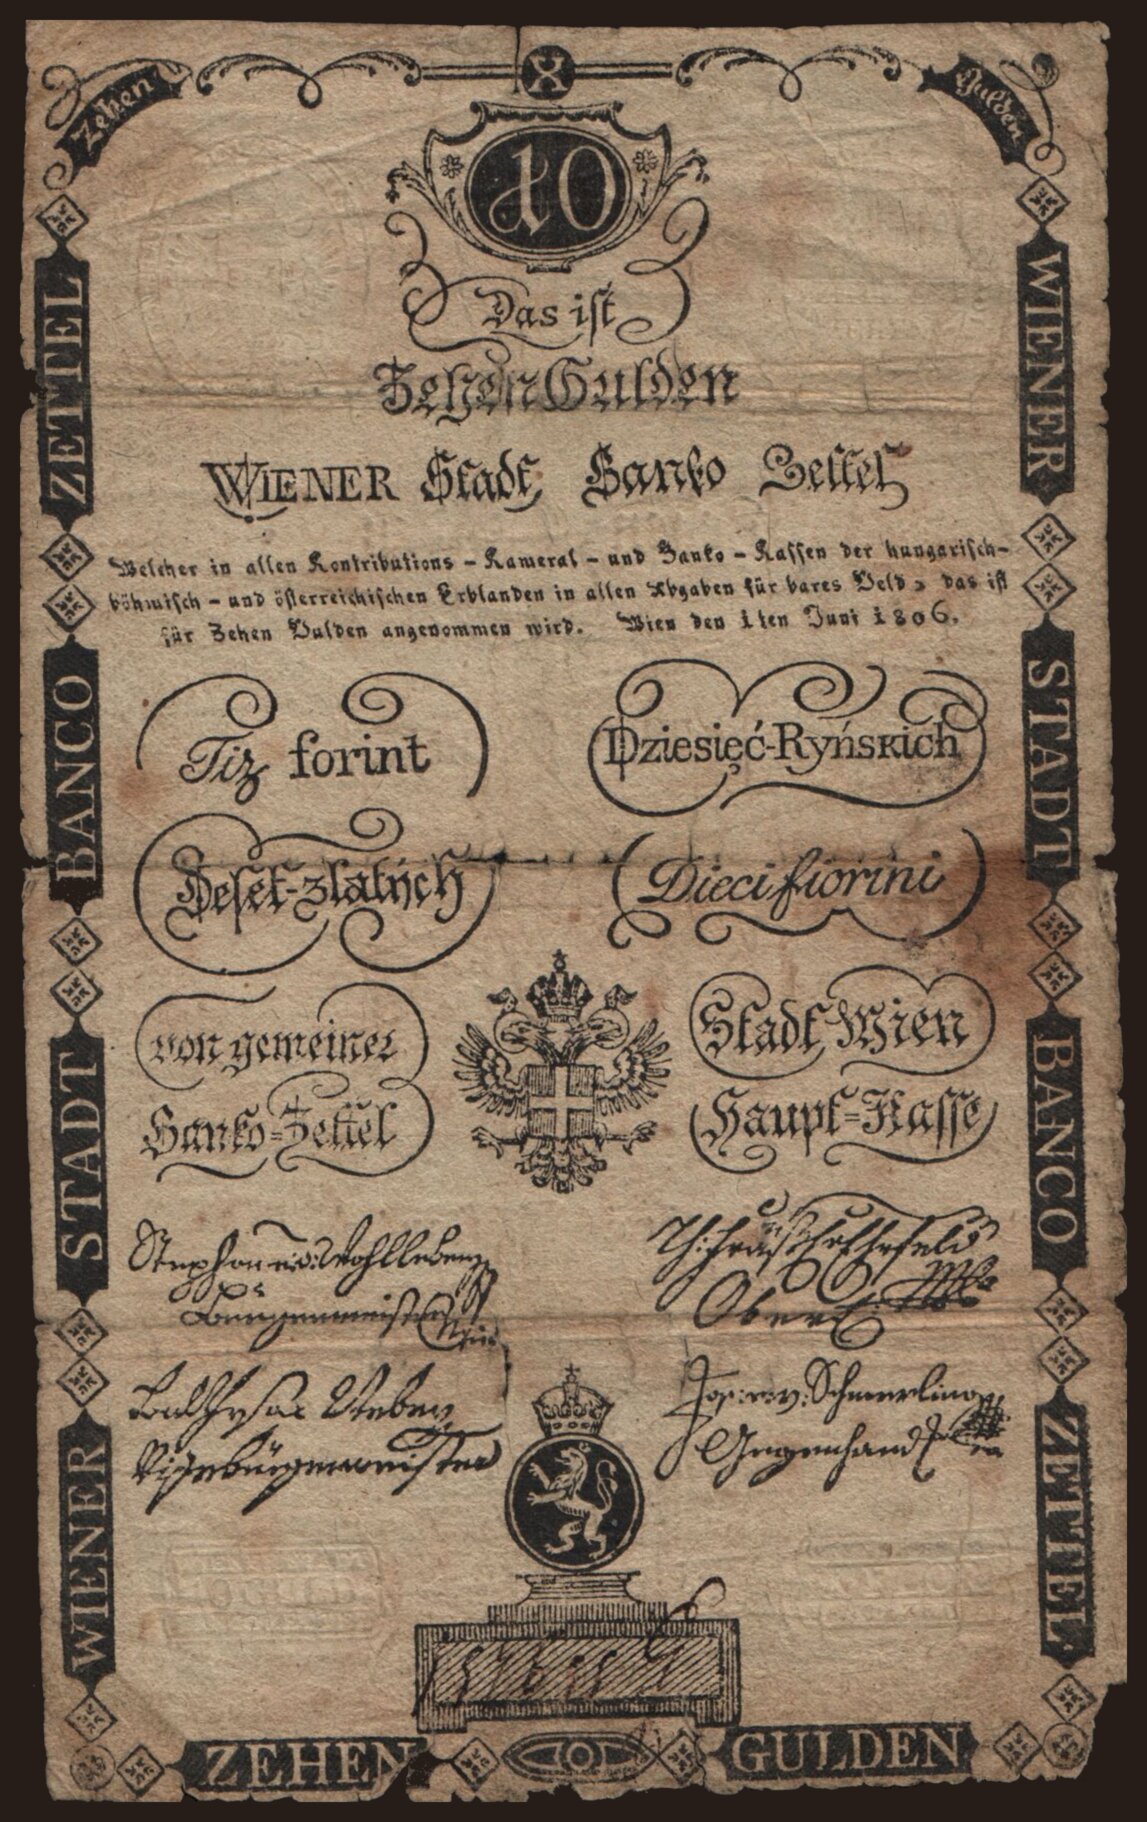 Zehen
X
Gulden
10
Das ist
Zehen Gulden
WIENER Stadt Banko Zettel
Welcher in allen Kontributions - Kameral - und Banko - Kassen der hungarisch-
böhmisch - und österreichischen Erblanden in allen Abgaben für bares Geld, das ist
für Zehen Gulden angenommen wird. Wien den 1ten Juni 1806.
Tiz forint
Dziesięć-Ryńskich
Deset-zlatých
Dieci fiorini
von gemeiner
Stadt Wien
Banko-Zettel
Haupt=Kasse
Stephan
Wohlleben
Burgermeister
Ober
Vizebürgermeister
Jos: v: Schmerling
Gegenhand
WIENER STADT BANCO ZETTEL
WIENER STADT BANCO ZETTEL
ZEHEN
GULDEN